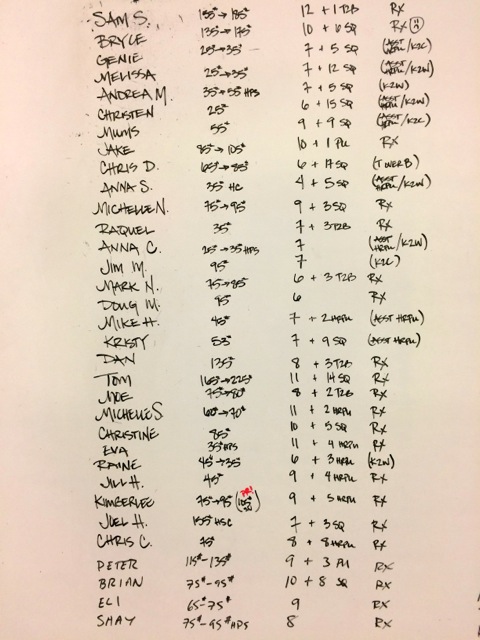 SAM S. 155# → 185# 12 + 1 T2B RX
BRYCE 135# → 175# 10 + 6 SQ RX
GENIE 25# → 35# 7 + 5 SQ (ASST HRPU/K2C)
MELISSA 25# → 35# 7 + 12 SQ (ASST HRPU/K2W)
ANDREA M. 35# → 55# HPS 7 + 5 SQ (K2W)
CHRISTEN 25# 6 + 15 SQ (ASST HRPU/K2W)
MUMS 55# 9 + 9 SQ (ASST HRPU/K2C)
JAKE 85# → 105# 10 + 1 PU RX
CHRIS D. 65# → 85# 6 + 17 SQ (T OVER B)
ANNA S. 35# HC 4 + 5 SQ (ASST HRPU/K2W)
MICHELLE N. 75# → 95# 9 + 3 SQ RX
RAQUEL 35# 7 + 3 T2B RX
ANNA C. 25# → 35# HPS 7 (ASST HRPU/K2W)
JIM M. 95# 7 (K2C)
MARK N. 75# → 85# 6 + 3 T2B RX
DOUG M. 95 6 RX
MIKE H. 45# 7 + 2 HRPU (ASST HRPU)
KRISTY 55# 7 + 9 SQ (ASST HRPU)
DAN 135# 8 + 3 T2B RX
TOM 165# → 225# 11 + 14 SQ RX
MOE 75# → 80# 8 + 2 T2B RX
MICHELLE S 60# → 70# 11 + 2 HRPU RX
CHRISTINE 85# 10 + 5 SQ RX
EVA 35# HPS 11 + 4 HRPU RX
RAINE 45# → 35# 6 + 3 HRPU (K2W)
JILL H. 45# 9 + 4 HRPU RX
KIMBERLEE 75# → 95# (105# PR!) 9 + 5 HRPU RX
JOEL H. 155# HSC 7 + 3 SQ RX
CHRIS C. 75# 8 + 8 HRPU RX
PETER 115# - 135# 9 + 3 PU RX
BRIAN 75# - 95# 10 + 8 SQ RX
ELI 65 - 75# 9 RX
SHAY 75# - 95# HPS 8 RX